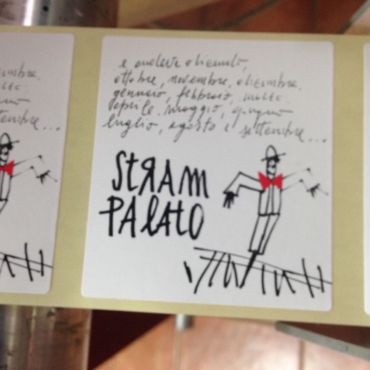 e
ottobre, novembre, dicembre,
gennaio, febbraio, marzo
aprile, maggio, giugno
luglio, agosto e settembre...
STRAM
PALATO